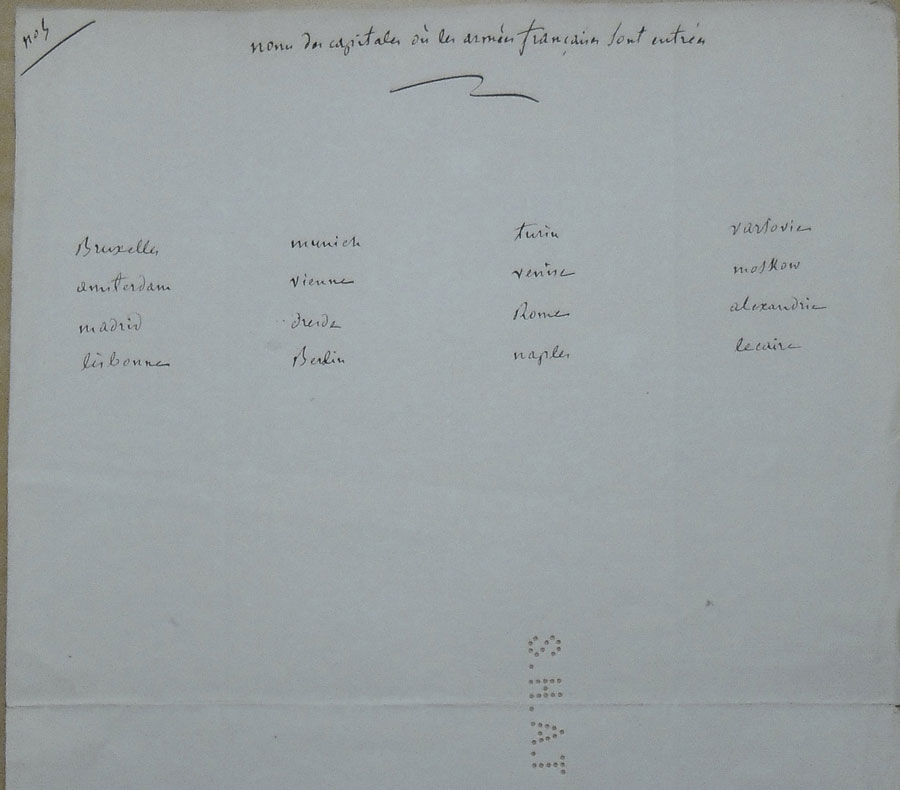 noms des capitales où les armées françaises sont entrées
Bruxelles munich turin varsovie
amsterdam vienne venise moskow
madrid dresde Rome alexandrie
lisbonne Berlin naples le caire
S.H.A.T